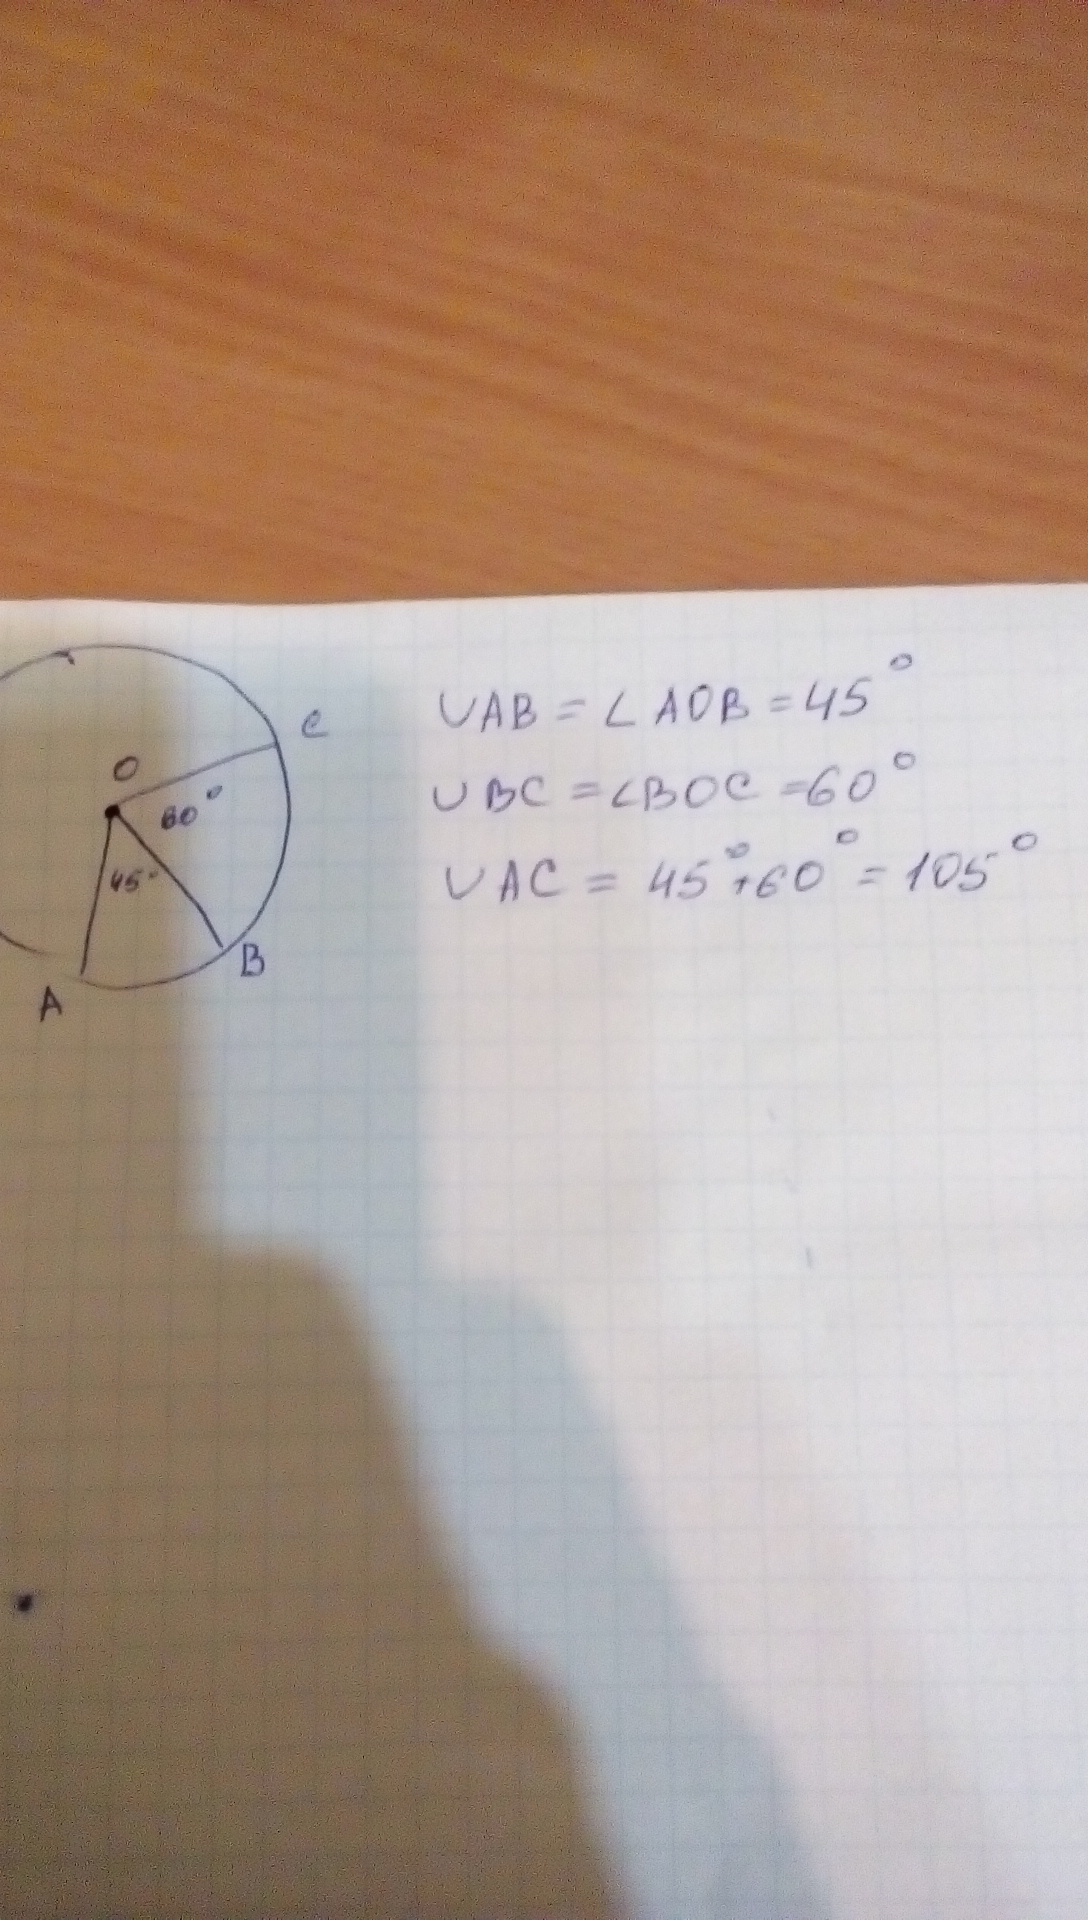 C
O
60°
45°
B
A
∪AB = ∠AOB = 45°
∪BC = ∠BOC = 60°
∪AC = 45° + 60° = 105°